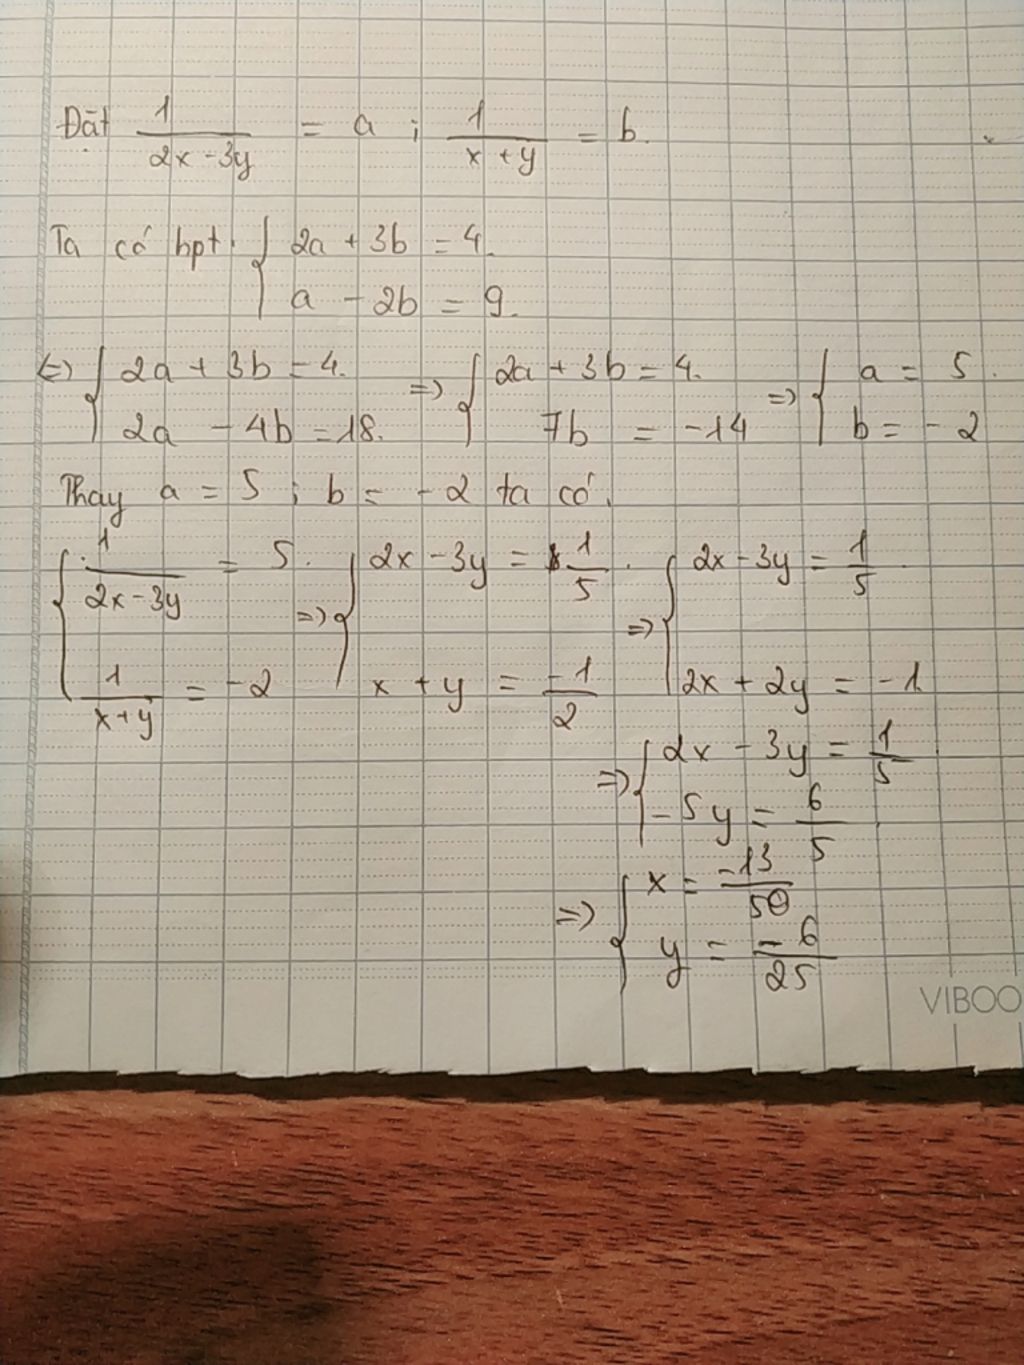 Đặt 1/(2x-3y) = a ; 1/(x+y) = b.
Ta có hpt: { 2a + 3b = 4.
a - 2b = 9.
<=> { 2a + 3b = 4. => { 2a + 3b = 4. => { a = 5.
2a - 4b = 18. 7b = -14 b = -2
Thay a = 5 ; b = -2 ta có.
{ 1/(2x-3y) = 5. => { 2x - 3y = 1/5. => { 2x - 3y = 1/5.
1/(x+y) = -2 x + y = -1/2 2x + 2y = -1
=> { 2x - 3y = 1/5
-5y = 6/5
=> { x = -13/50
y = -6/25
VIBOO